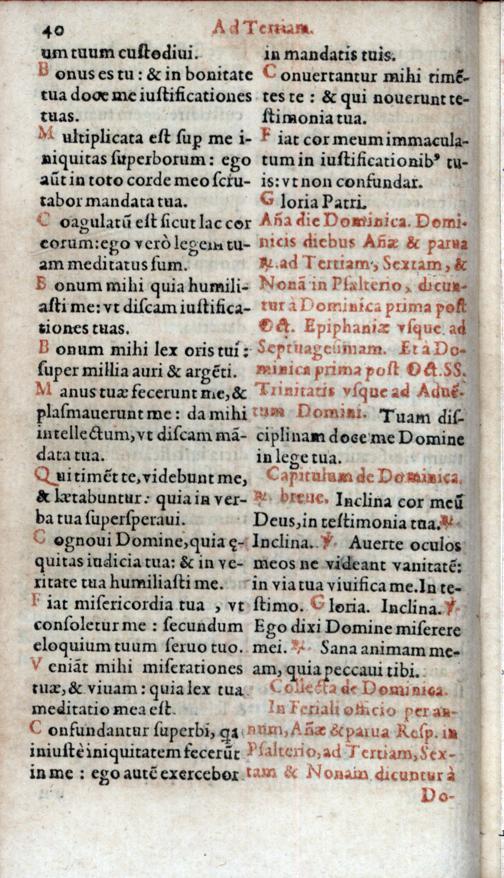 40 Ad Tertiam.
um tuum custodiui.
B onus es tu : & in bonitate
tua doce me iustificationes
tuas.
M ultiplicata est sup me i-
niquitas superborum : ego
aūt in toto corde meo scru-
tabor mandata tua.
C oagulatū est sicut lac cor
eorum: ego verò legem tu-
am meditatus sum.
B onum mihi quia humili-
asti me: vt discam iustifica-
tiones tuas.
B onum mihi lex oris tui:
super millia auri & argēti.
M anus tuæ fecerunt me, &
plasmauerunt me : da mihi
intellectum, vt discam mā-
data tua.
Q ui timēt te, videbunt me,
& lætabuntur : quia in ver-
ba tua supersperaui.
C ognoui Domine, quia ę-
quitas iudicia tua: & in ve-
ritate tua humiliasti me.
F iat misericordia tua , vt
consoletur me : secundum
eloquium tuum seruo tuo.
V eniāt mihi miserationes
tuæ, & viuam : quia lex tua
meditatio mea est.
C onfundantur superbi, qa
iniustè iniquitatem fecerūt
in me : ego autē exercebor
in mandatis tuis.
C onuertantur mihi timē-
tes te : & qui nouerunt te-
stimonia tua.
F iat cor meum immacula-
tum in iustificationibꝰ tu-
is: vt non confundar.
G loria Patri.
Aña die Dominica. Domi-
nicis diebus Añæ & parua
℟. ad Tertiam, Sextam, &
Nonā in Psalterio, dicun-
tur à Dominica prima post
Oct. Epiphaniæ vsque ad
Septuagesimam. Et à Do-
minica prima post Oct. SS.
Trinitatis vsque ad Aduē-
tum Domini. Tuam dis-
ciplinam doce me Domine
in lege tua.
Capitulum de Dominica.
℟. breue. Inclina cor meū
Deus, in testimonia tua. ℟.
Inclina. ℣. Auerte oculos
meos ne videant vanitatē:
in via tua viuifica me. In te-
stimo. Gloria. Inclina. ℣.
Ego dixi Domine miserere
mei. ℟. Sana animam me-
am, quia peccaui tibi.
Collecta de Dominica.
In Feriali officio per an-
num, Añæ & parua Resp. in
Psalterio, ad Tertiam, Sex-
tam & Nonam dicuntur à
Do-